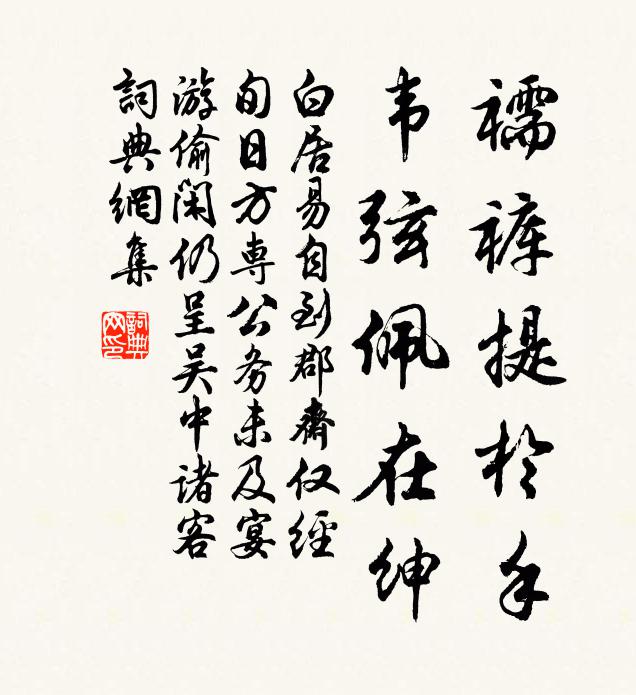 襦裤提於手
韦弦佩在绅
白居易自到郡齋仅經
旬日方専公务未及宴
游偷闲仍呈吴中诸客
詞典網集
詞典网印